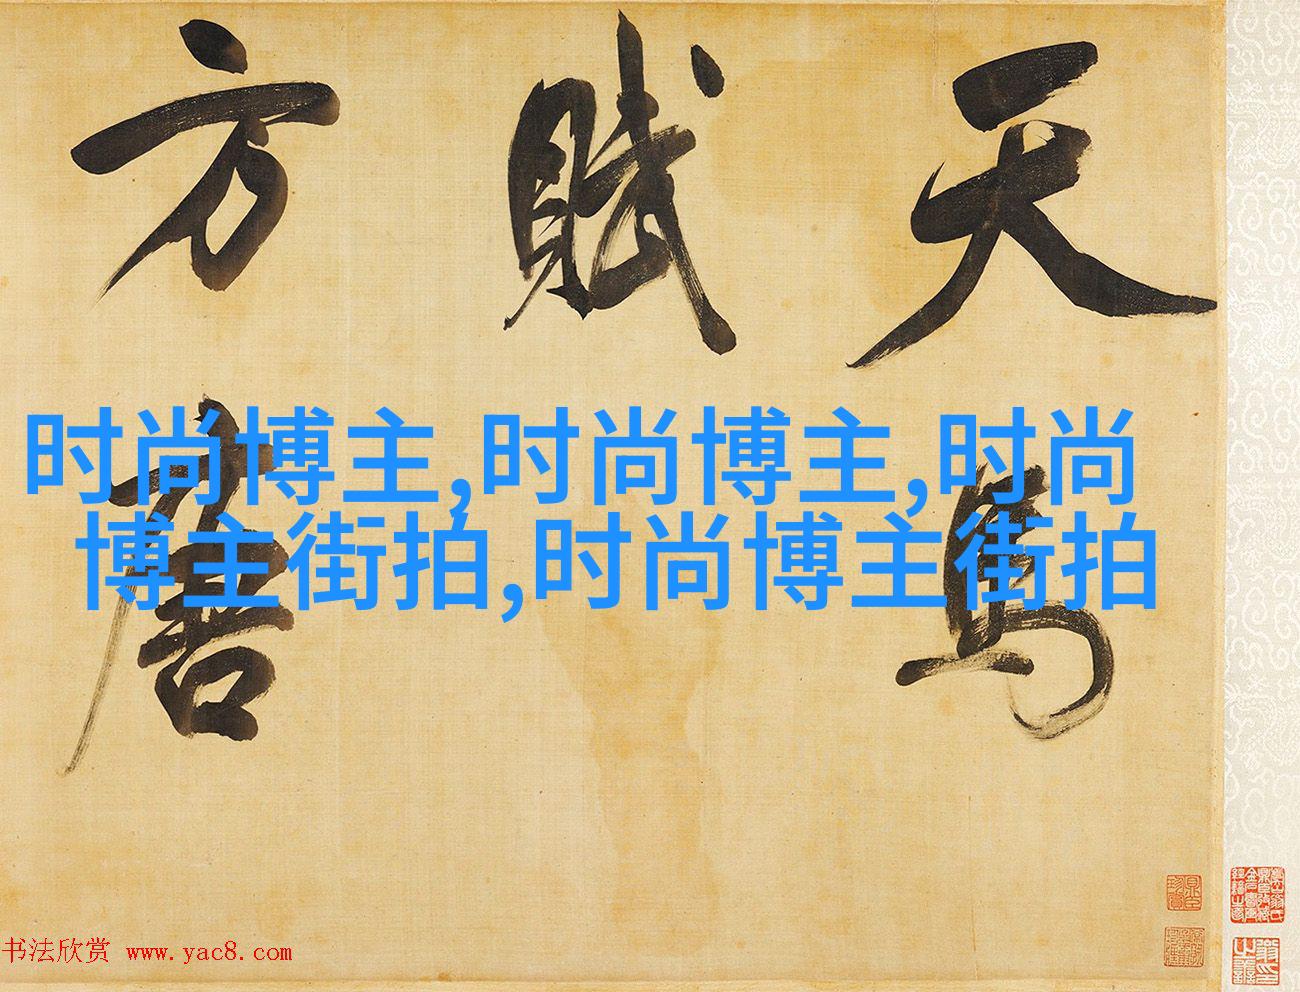 天馬
賦
方唐
时尚博主,时尚博主,时尚
博主街拍,时尚博主街拍
书法欣赏 www.yac8.com